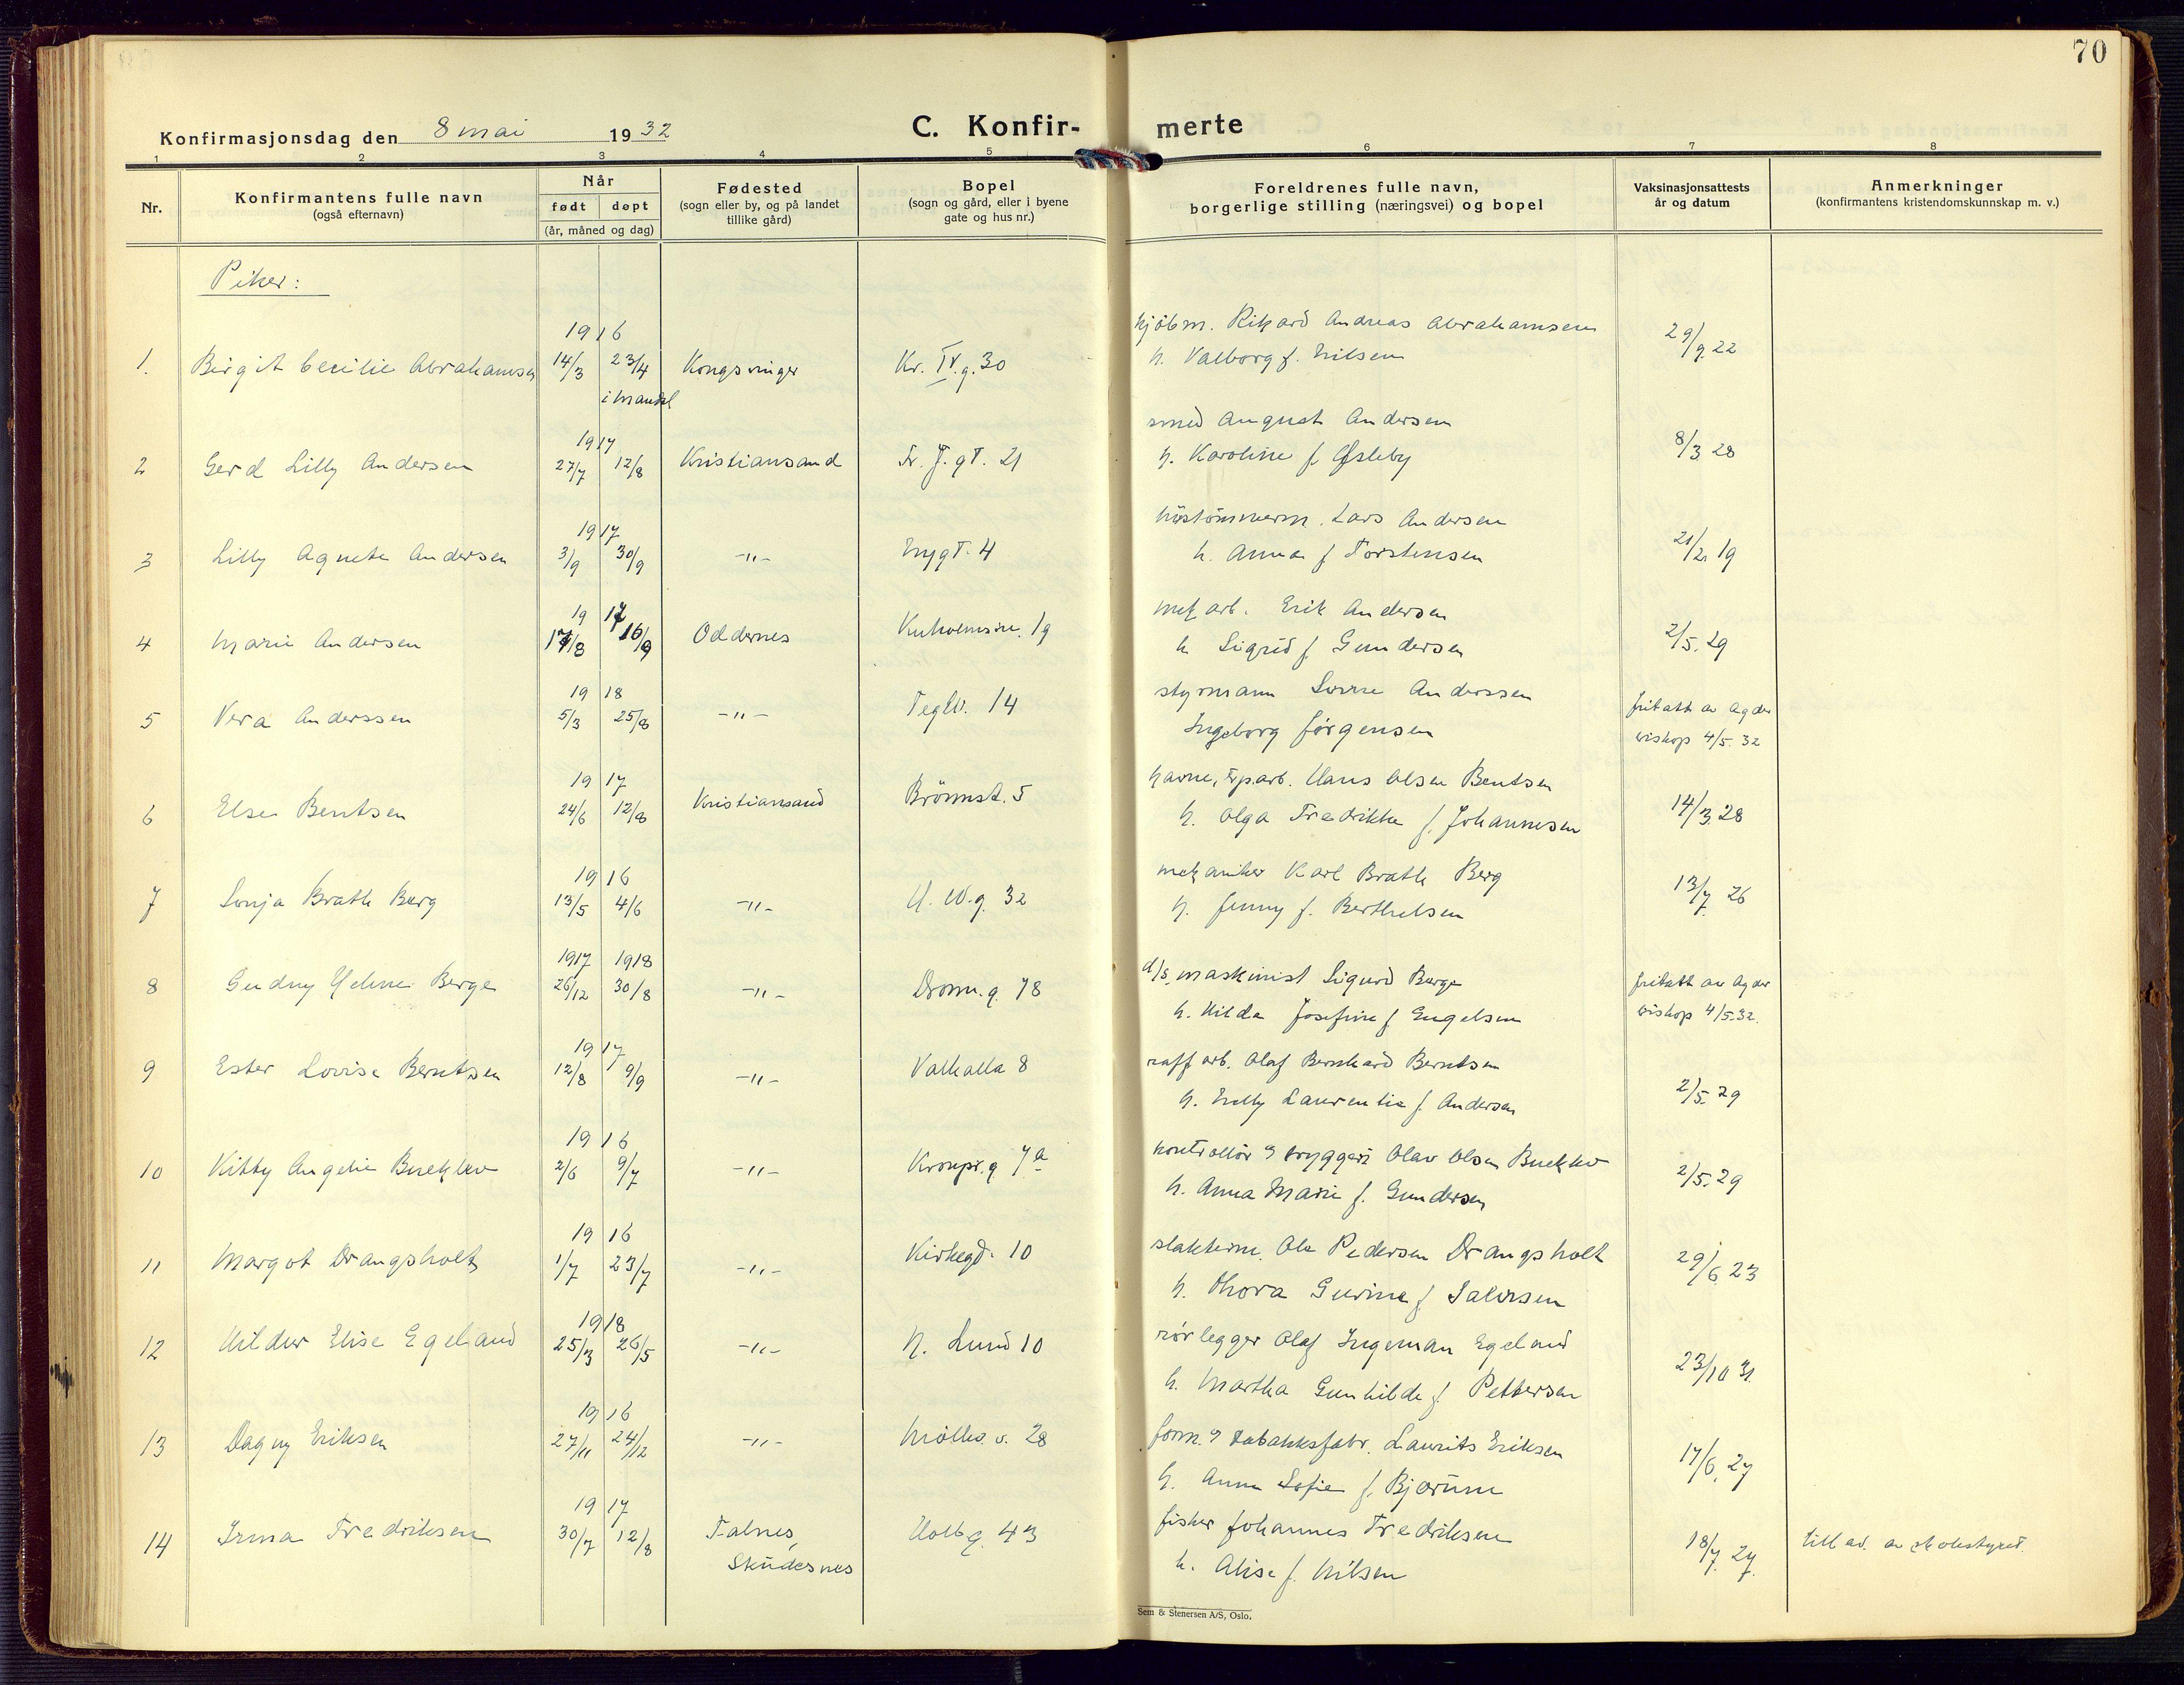 70
Konfirmasjonsdag den 8 mai 1932
C. Konfir- merte
1 2 3 4 5 6 7 8
Nr.
Konfirmantens fulle navn
(også efternavn)
Når
født døpt
(år, måned og dag)
Fødested
(sogn eller by, og på landet
tillike gård)
Bopel
(sogn og gård, eller i byene
gate og hus nr.)
Foreldrenes fulle navn,
borgerlige stilling (næringsvei) og bopel
Vaksinasjonsattests
år og datum
Anmerkninger
(konfirmantens kristendomskunnskap m. v.)
Piker:
1916
1. Birgit Cecilie Abrahamsen 14/3 23/4 Kongsvinger Kr. IV. g. 30
i Mandal
kjøbm. Rikard Andreas Abrahamsen
h. Valborg f. Nilsen
29/9 22
1917
2 Gerd Lilly Andersen 27/7 12/8 Kristiansand Fr. F. gt. 21
smed August Andersen
h. Karoline f.
8/3 28
1917
3 Lilly Agnete Andersen 3/9 30/9 -"- Nygt. 4
Lars Andersen
h. Anna f Torstensen
21/2 19
1917
4 Marie Andersen 17/8 16/9 Oddernes Kuholmsv. 19
mek arb. Erik Andersen
h Sigrid f Gundersen
2/5. 29
1918
5 Vera Anderssen 5/3 25/8 -"- Teglv. 14
styrmann Sverre Anderssen
Ingeborg Jørgensen
fritatt av Agder
biskop 4/5. 32
1917
6 Else Bentsen 24/6 12/8 Kristiansand Brönnst. 5
havne, arb. Hans Olsen Bentsen
h. Olga Fredrikke f. Johannesen
14/3 28
1916
7 Sonja Brath Berg 13/5 4/6 -"- H. W. g. 32
mekaniker Karl Brath Berg
h. Jenny f. Berthelsen
13/7 26
1917 1918
8 Gudny Helene Berge 26/12 30/8 -"- Dronn. g. 78
d/s, maskinist Sigurd Berge
h. Hilda Josefine f Engelsen
fritatt av Agder
biskop 4/5. 32.
1917
9 Ester Lovise Berntsen 12/8 9/9 -"- Valhalla 8
raff arb. Olaf Bernhard Berntsen
h. Laurentia f. Andersen
2/5. 29
1916
10 Kitty Angelie 2/6 9/7 -"- Kronpr. g 7a
kontrollør bryggeri Olav Olsen
h. Anna Marie f. Gundersen
2/5. 29
1916
11 Margot Drangsholt 1/7 23/7 -"- Kirkegd. 10
slakterm. Ole Pedersen Drangsholt
h. Thora Gurine f Salvesen
29/6 23
1918
12 Hildur Elise Egeland 25/3 26/5 -"- N. Lund 10
rørlegger Olaf Ingeman Egeland
h. Martha Gunhilde f. Pettersen
23/10 31
1916
13 Dagny Eriksen 27/11 24/12 -"- Mølle. v. 28
form. tobakksfabr. Laurits Eriksen
h. Anna Sofie f. Bjørum
17/6. 27
1917
14 Irma Fredriksen 30/7 12/8 Falnes, Holb. g. 43
Skudesnes
fisker Johannes Fredriksen
h. Alise f. Nilsen
18/7. 27.
till av. av skolestyret.
Sem & Stenersen A/S, Oslo.